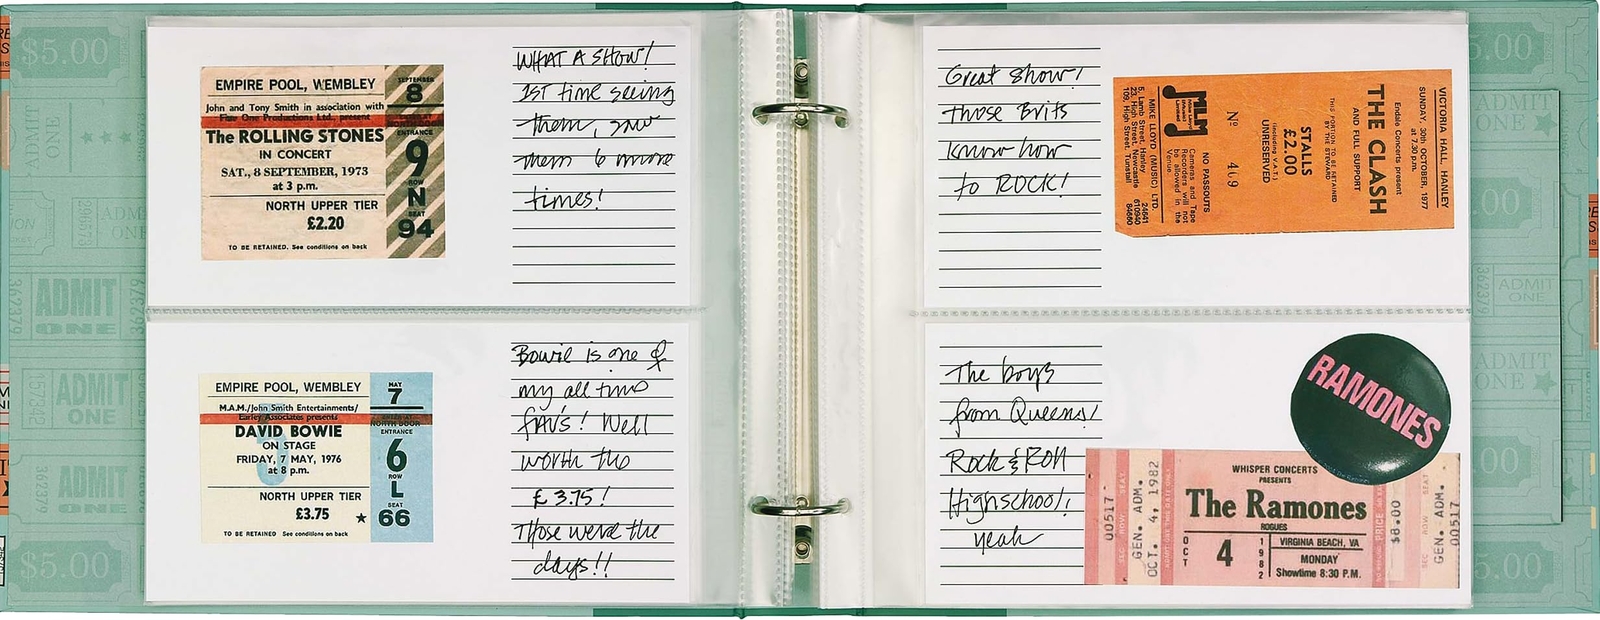 $5.00
ADMIT
ONE
ADMIT
ONE
362379
ADMIT
ONE
362379
ADMIT
ONE
362379
ADMIT
ONE
$5.00
EMPIRE POOL, WEMBLEY
John and Tony Smith in association with
Fine One Productions Ltd., present
The ROLLING STONES
IN CONCERT
SAT., 8 SEPTEMBER, 1973
at 3 p.m.
NORTH UPPER TIER
£2.20
TO BE RETAINED. See conditions on back
SEPTEMBER
8
ENTRANCE
9
ROW
N
SEAT
94
WHAT A SHOW!
1ST time seeing
them, saw
them 6 more
times!
EMPIRE POOL, WEMBLEY
M.A.M./John Smith Entertainments/
Earley Associates presents
DAVID BOWIE
ON STAGE
FRIDAY, 7 MAY, 1976
at 8 p.m.
NORTH UPPER TIER
£3.75
TO BE RETAINED See conditions on back
MAY
7
NORTH DOOR
ENTRANCE
6
ROW
L
SEAT
66
Bowie is one of
my all time
fav's! Well
worth the
£3.75!
Those were the
days!!
Great Show!
Those Brits
know how
to ROCK!
VICTORIA HALL, HANLEY
SUNDAY, 30th OCTOBER, 1977
at 7.30 p.m.
Endale Concerts present
THE CLASH
AND FULL SUPPORT
THIS PORTION TO BE RETAINED
BY THE STEWARD
STALLS
£2.00
(including V.A.T.)
UNRESERVED
No 409
NO PASSOUTS
Cameras and Tape
Recorders will not
be allowed in the
Venue.
MLM
MIKE LLOYD (MUSIC) LTD.
5, Lamb Street, Hanley 24641
23, High Street, Newcastle 610940
109, High Street, Tunstall 84660
The boys
from Queens!
Rock & Roll
Highschool!
yeah
RAMONES
00517
GEN. ADM.
OCT. 4, 1982
WHISPER CONCERTS
PRESENTS
The Ramones
ROGUES
OCT
4
1982
VIRGINIA BEACH, VA
MONDAY
Showtime 8:30 P.M.
PRICE
$8.00
GEN. ADM.
00517
5.00
ADMIT
ONE
.00
362379
ADMIT
ONE
ADMIT
ONE
.00
5.00